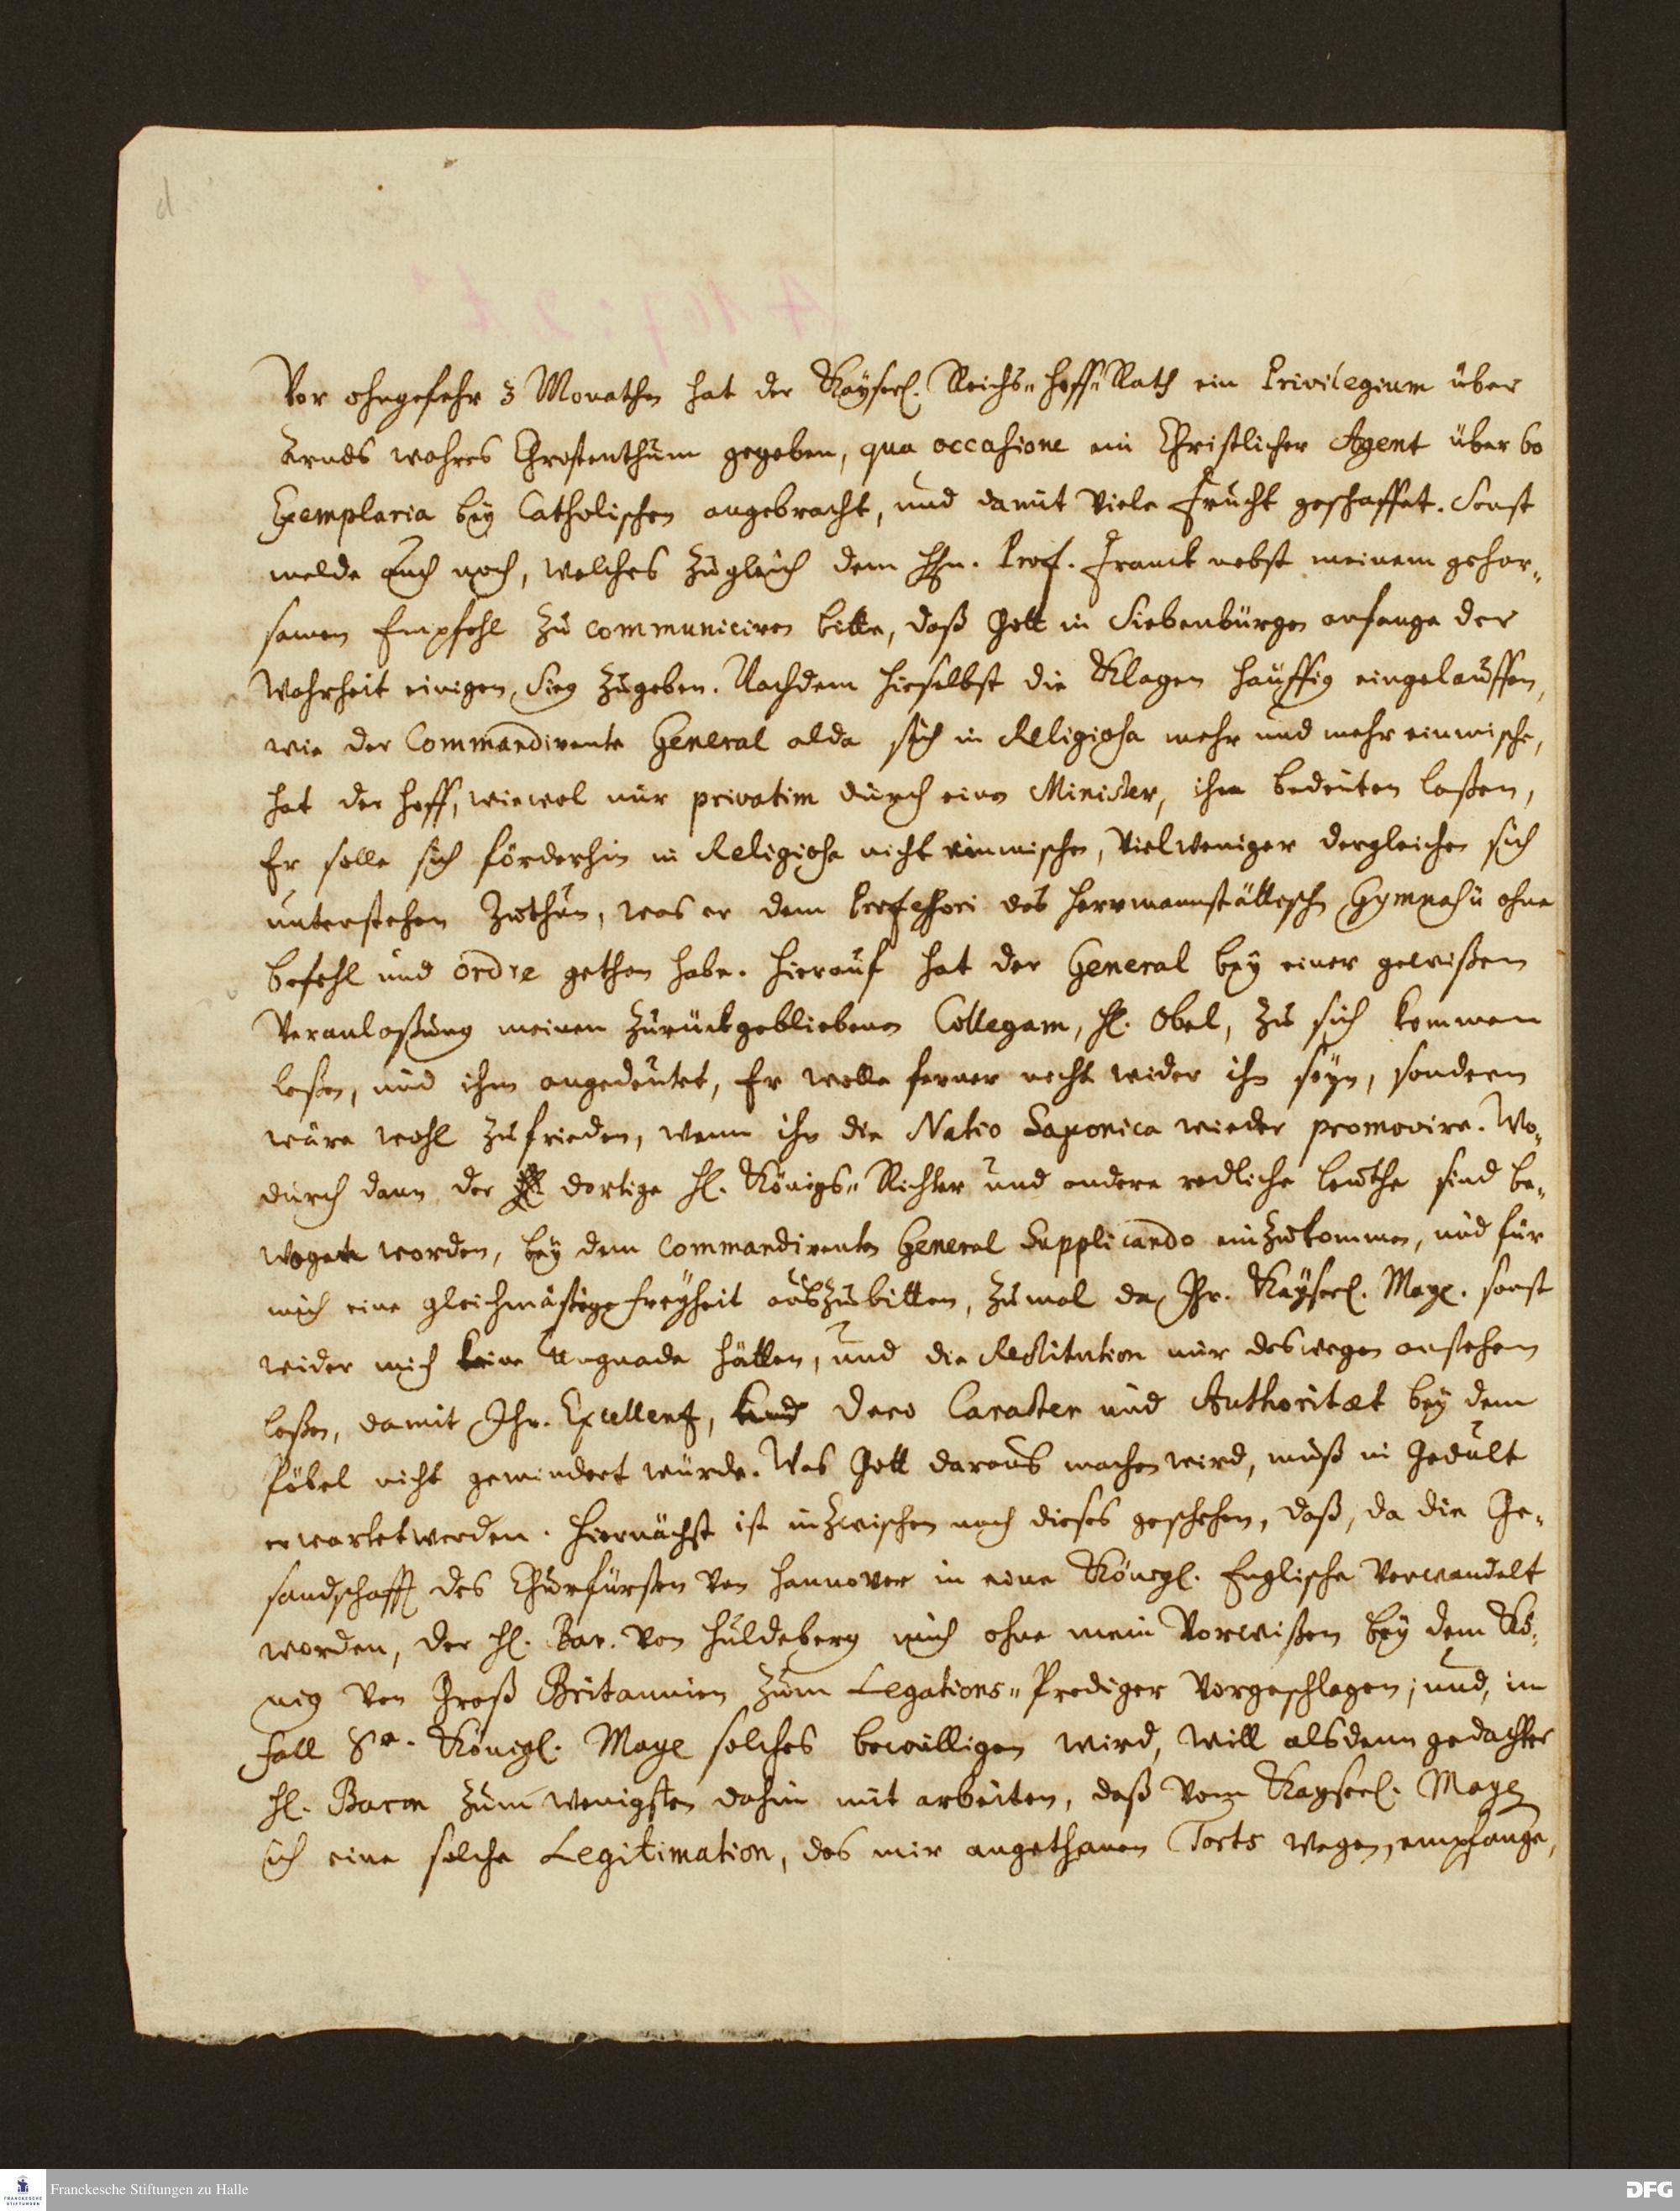 d.
Vor ohngefehr 3 Monathen hat der Käyserl. Reichs-Hoff-Rath ein Privilegium über
Arnds wahres Christenthum gegeben, qua occasione ein Christlicher Agent über 60
Exemplaria bey Catholischen angebracht, und damit viele Frucht geschaffet. Sonst
melde auch noch, welches zugleich dem Hhn. Prof. Franck nebst meinem gehor-
samen Empfehl zu communiciren bitte, daß Gott in Siebenbürgen anfange der
Wahrheit einigen Sieg zugeben. Nachdem hieselbst die Klagen häuffig eingelauffen,
wie der Commandirente General alda sich in Religiosa mehr und mehr einmische,
hat der Hoff, wiewol nur privatim durch einen Minister, ihm bedeuten laßen,
Er solle sich förderhin in Religiosa nicht einmischen, vielweniger dergleichen sich
unterstehen zuthun, was er dem Professori des Herrmannstättisch Gymnasii ohne
befehl und ordre gethan habe. Hierauf hat der General bey einer gewißen
Veranlaßung meinen zurückgebliebenen Collegam, H. Obel, zu sich kommen
laßen, und ihm angedeutet, Er wolle ferner nicht wider ihn seyn, sondern
wäre wohl zufrieden, wenn ihn die Natio Saxonica wieder promovire. Wo-
durch dann der dortige H. Königs-Richter und andere redliche leuthe sind be-
wogen worden, bey dem Commandirenten General Supplicando einzukommen, und für
mich eine gleichmäßige freyheit auszubitten, zumal da Ihr. Käyserl. Maye. sonst
wider mich keine Ungnade hätten, und die Restitution nur deswegen anstehen
laßen, damit Ihr. Excellenz, Dero Caracter und Authoritæt bey dem
Pöbel nicht gemindert würde. Was Gott daraus machen wird, muß in Gedult
erwartet werden. Hiernächst ist inzwischen noch dieses geschehen, daß, da die Ge-
sandschafft des Churfürsten von Hannover in eine Königl. Englische verwandelt
worden, der H. Bar. von Huldeberg mich ohne mein Vorwißen bey dem Kö-
nig von Groß Britannien zum Legations-Prediger vorgeschlagen; und, im
fall Se. Königl. Maye solches bewilligen wird, will alsdenn gedachter
H. Baron zum wenigsten dahin mit arbeiten, daß vom Kayserl. Maye
ich eine solche Legitimation, des mir angethanen Torts wegen, empfange,
Franckesche Stiftungen zu Halle
DFG